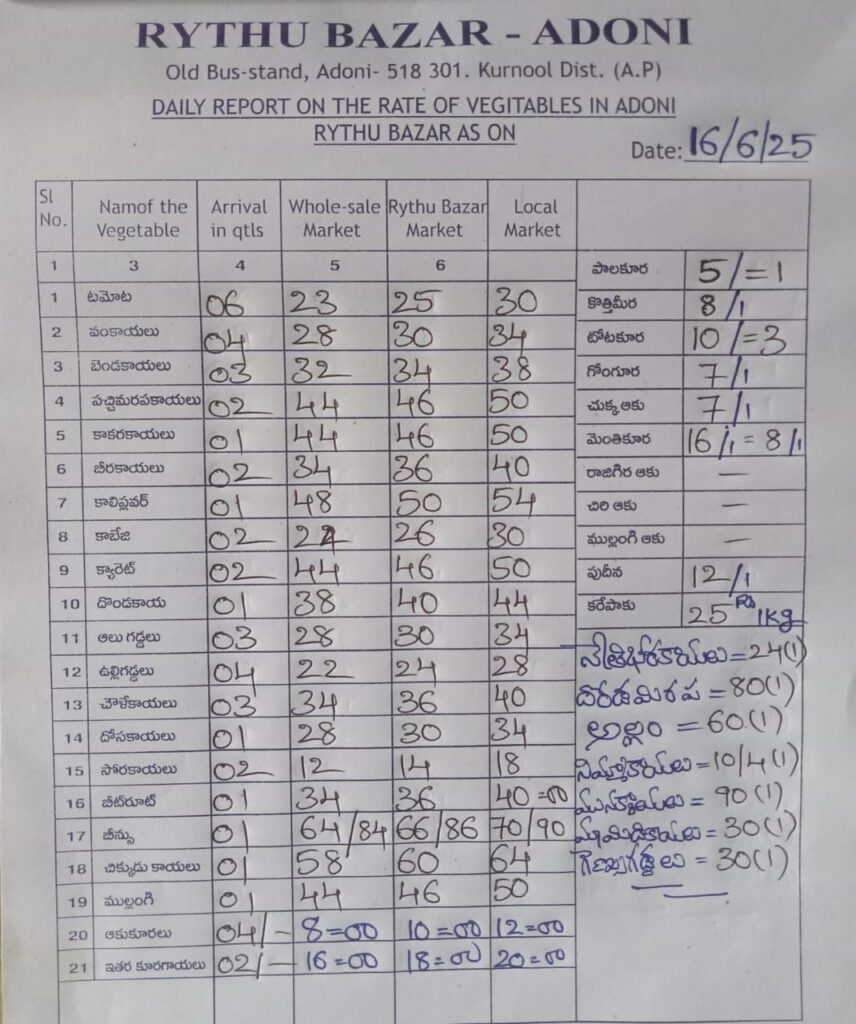 RYTHU BAZAR - ADONI
Old Bus-stand, Adoni- 518 301. Kurnool Dist. (A.P)
DAILY REPORT ON THE RATE OF VEGITABLES IN ADONI
RYTHU BAZAR AS ON
Date: 16/6/25
Sl No. Namof the Vegetable Arrival in qtls Whole-sale Market Rythu Bazar Market Local Market
1 3 4 5 6
1 టమోట 06 23 25 30
2 వంకాయలు 04 28 30 34
3 బెండకాయలు 03 32 34 38
4 పచ్చిమిరపకాయలు 02 44 46 50
5 కాకరకాయలు 01 44 46 50
6 బీరకాయలు 02 34 36 40
7 కాలిఫ్లవర్ 01 48 50 54
8 కాబేజి 02 26 30
9 క్యారెట్ 02 44 46 50
10 దొండకాయ 01 38 40 44
11 ఆలు గడ్డలు 03 28 30 34
12 ఉల్లిగడ్డలు 04 22 24 28
13 చౌళేకాయలు 03 34 36 40
14 దోసకాయలు 01 28 30 34
15 సోరకాయలు 02 12 14 18
16 బీట్‌రూట్ 01 34 36 40=00
17 బీన్సు 01 64/84 66/86 70/90
18 చిక్కుడు కాయలు 01 58 60 64
19 ముల్లంగి 01 44 46 50
20 ఆకుకూరలు 04/- 8=00 10=00 12=00
21 ఇతర కూరగాయలు 02/- 16=00 18=00 20=00
పాలకూర 5/=1
కొత్తిమీర 8/1
టోటకూర 10/=3
గోంగూర 7/1
చుక్క ఆకు 7/1
మెంతికూర 16/1=8/1
రాజగిర ఆకు —
చిరి ఆకు —
ముల్లంగి ఆకు —
పుదీన 12/1
కరేపాకు 25 Rs 1kg
=24(1)
=80(1)
అల్లం =60(1)
నిమ్మకాయలు=10/4(1)
మునక్కాయలు=90(1)
=30(1)
గెణుసుగడ్డలు=30(1)